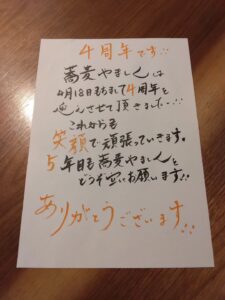 4周年です!!
蕎麦やましくは
4月18日をもちまして4周年を
迎えさせて頂きました!!
これからも
笑顔で頑張っていきます。
5年目も蕎麦やましくと
どうぞ宜しくお願います!!
ありがとうございます!!